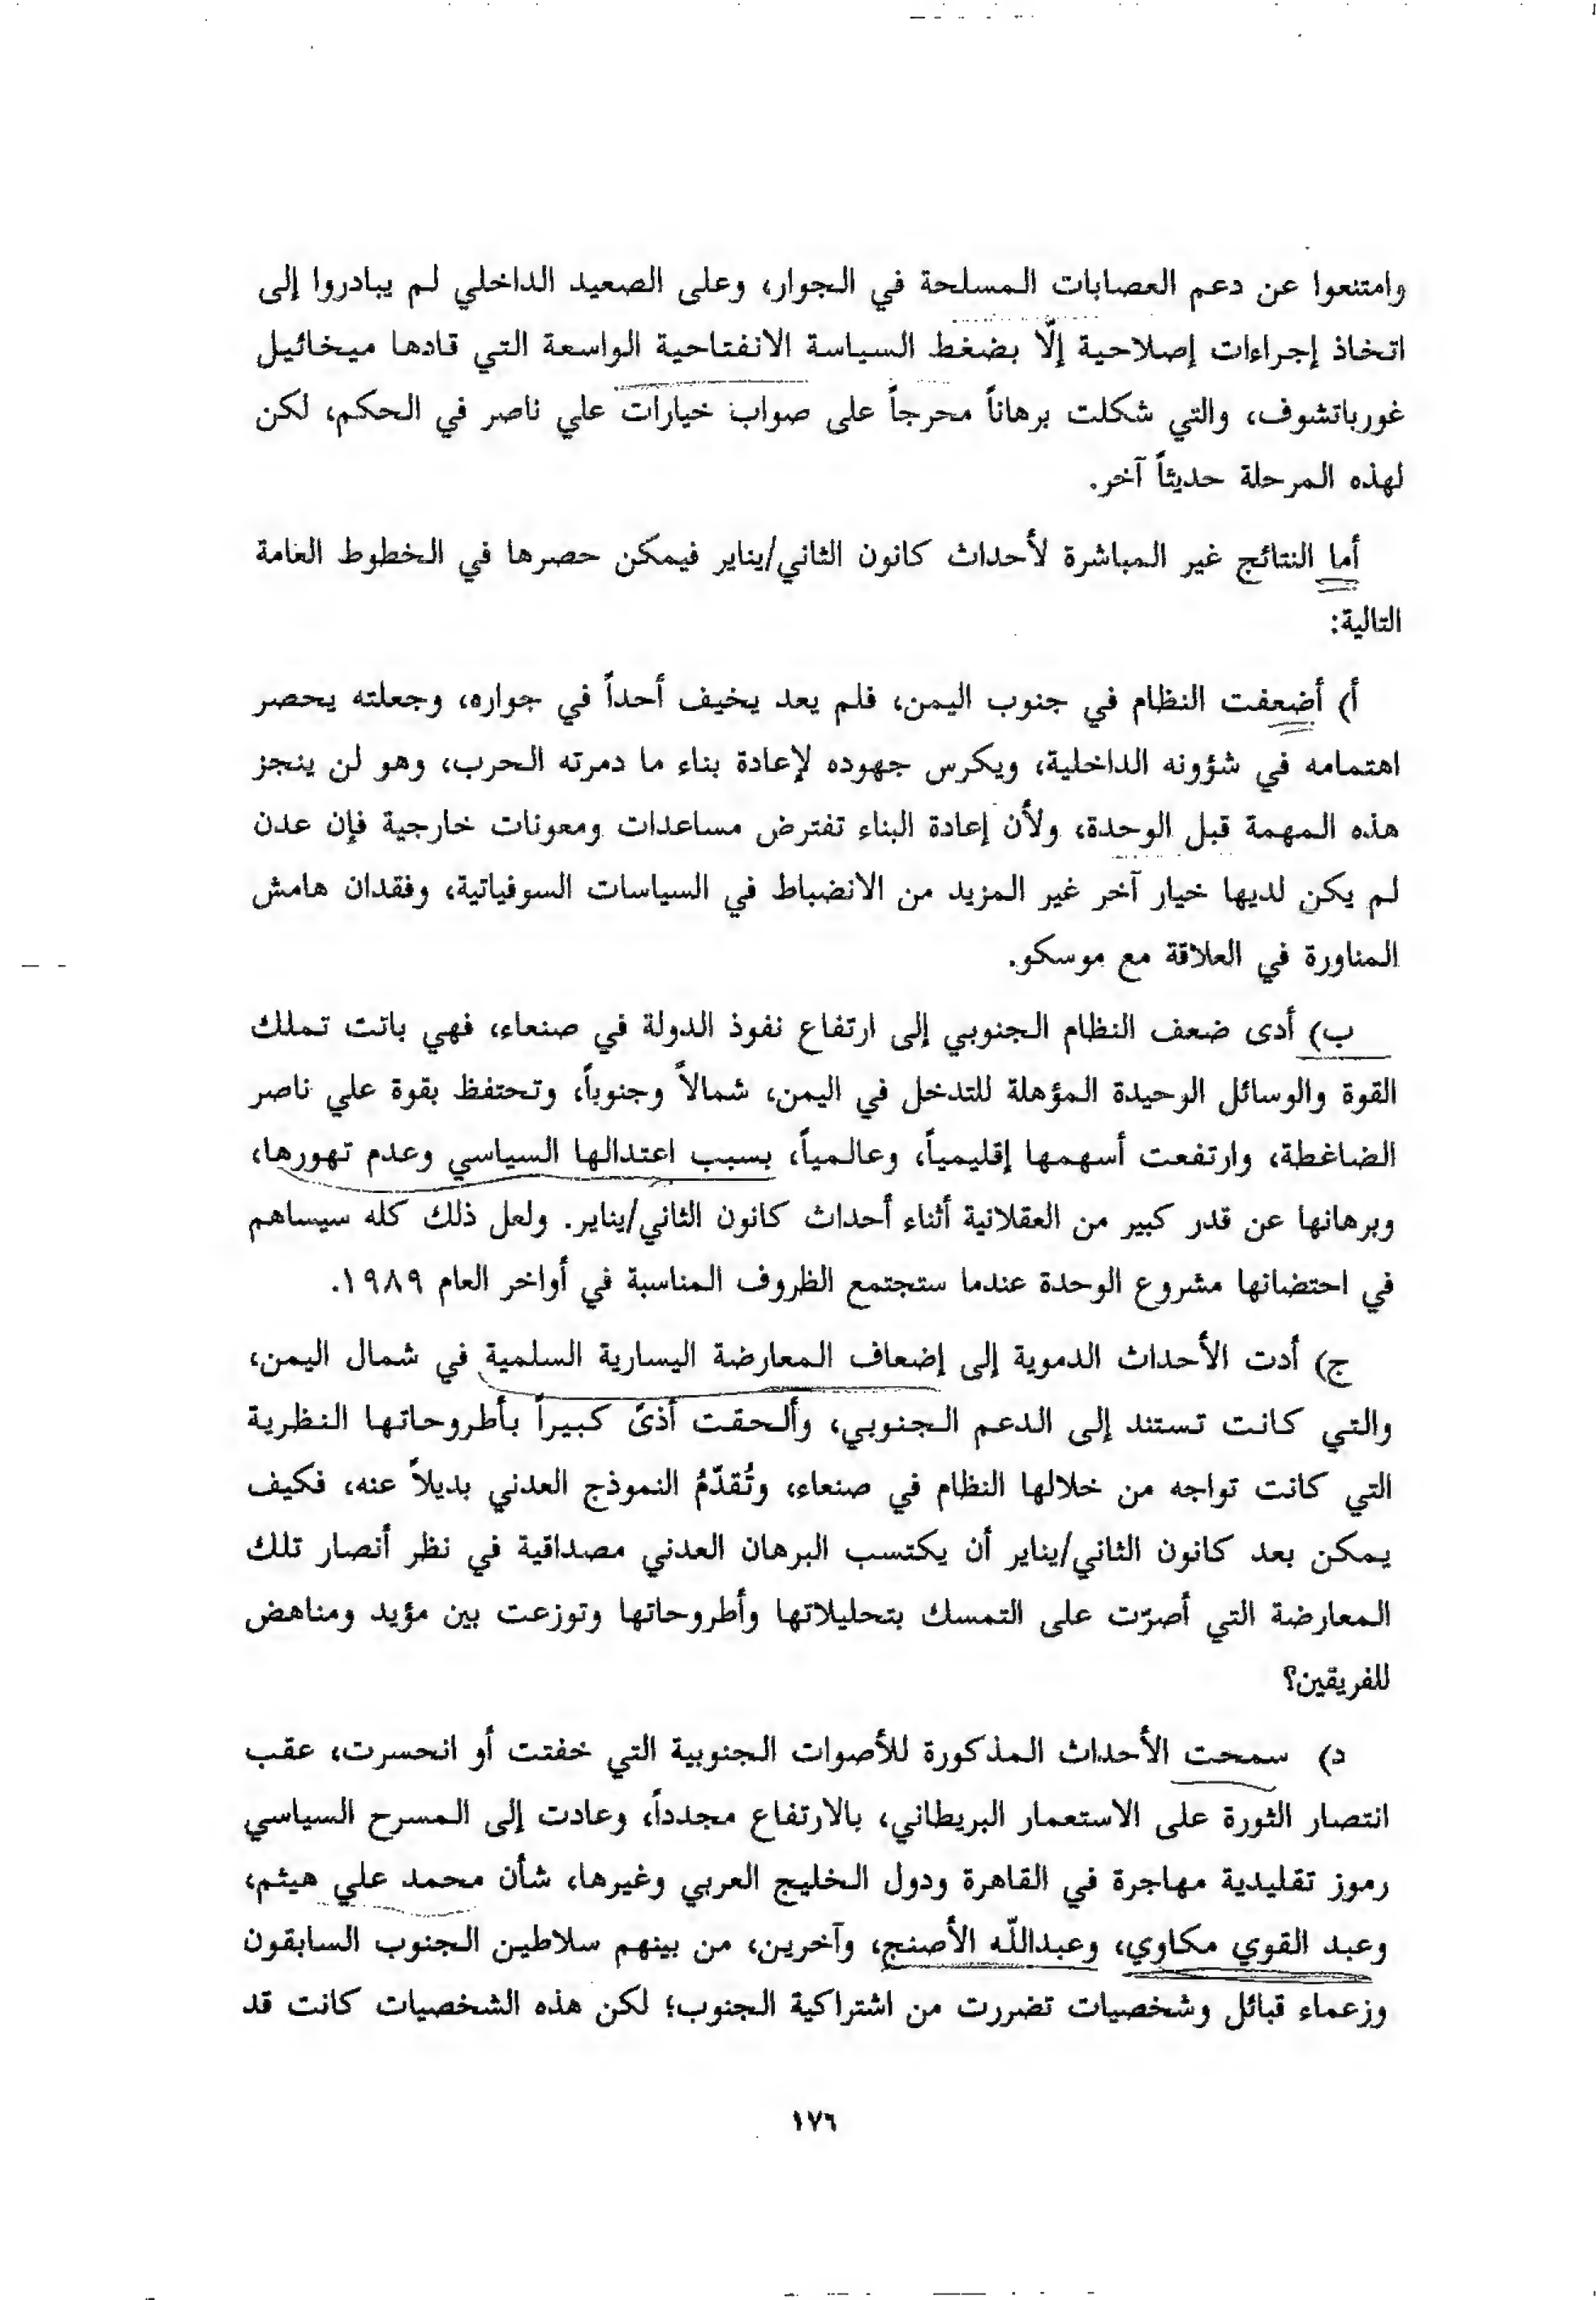 وامتنعوا عن دعم العصابات المسلحة في الجوار، وعلى الصعيد الداخلي لم يبادروا إلى
اتخاذ إجراءات إصلاحية إلّا بضغط السياسة الانفتاحية الواسعة التي قادها ميخائيل
غورباتشوف، والتي شكلت برهاناً محرجاً على صواب خيارات علي ناصر في الحكم، لكن
لهذه المرحلة حديثاً آخر.
أما النتائج غير المباشرة لأحداث كانون الثاني/يناير فيمكن حصرها في الخطوط العامة
التالية:
أ) أضعفت النظام في جنوب اليمن، فلم يعد يخيف أحداً في جواره، وجعلته يحصر
اهتمامه في شؤونه الداخلية، ويكرس جهوده لإعادة بناء ما دمرته الحرب، وهو لن ينجز
هذه المهمة قبل الوحدة، ولأن إعادة البناء تفترض مساعدات ومعونات خارجية فإن عدن
لم يكن لديها خيار آخر غير المزيد من الانضباط في السياسات السوفياتية، وفقدان هامش
المناورة في العلاقة مع موسكو.
ب) أدى ضعف النظام الجنوبي إلى ارتفاع نفوذ الدولة في صنعاء، فهي باتت تملك
القوة والوسائل الوحيدة المؤهلة للتدخل في اليمن، شمالاً وجنوباً، وتحتفظ بقوة علي ناصر
الضاغطة، وارتفعت أسهمها إقليمياً، وعالمياً، بسبب اعتدالها السياسي وعدم تهورها،
وبرهانها عن قدر كبير من العقلانية أثناء أحداث كانون الثاني/يناير. ولعل ذلك كله سيساهم
في احتضانها مشروع الوحدة عندما ستجتمع الظروف المناسبة في أواخر العام ١٩٨٩.
ج) أدت الأحداث الدموية إلى إضعاف المعارضة اليسارية السلمية في شمال اليمن،
والتي كانت تستند إلى الدعم الجنوبي، وألحقت أذىً كبيراً بأطروحاتها النظرية
التي كانت تواجه من خلالها النظام في صنعاء، وتُقدّمُ النموذج العدني بديلاً عنه، فكيف
يمكن بعد كانون الثاني/يناير أن يكتسب البرهان العدني مصداقية في نظر أنصار تلك
المعارضة التي أصرّت على التمسك بتحليلاتها وأطروحاتها وتوزعت بين مؤيد ومناهض
للفريقين؟
د) سمحت الأحداث المذكورة للأصوات الجنوبية التي خفتت أو انحسرت، عقب
انتصار الثورة على الاستعمار البريطاني، بالارتفاع مجدداً، وعادت إلى المسرح السياسي
رموز تقليدية مهاجرة في القاهرة ودول الخليج العربي وغيرها، شأن محمد علي هيثم،
وعبد القوي مكاوي، وعبداللّه الأصنج، وآخرين، من بينهم سلاطين الجنوب السابقون
وزعماء قبائل وشخصيات تضررت من اشتراكية الجنوب؛ لكن هذه الشخصيات كانت قد
١٧٦